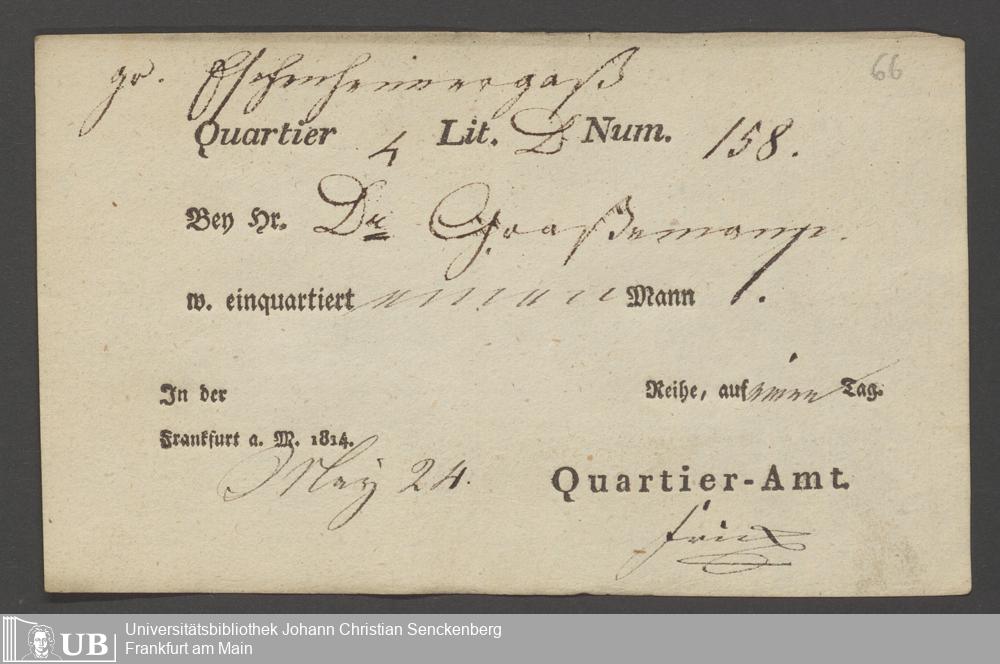 66
gr. Eschenheimergaß
Quartier 4 Lit. D Num. 158.
Bey Hr. Dr Graßemann.
w. einquartiert einen Mann 1.
In der Reihe, auf einen Tag.
Frankfurt a. M. 1814.
May 24.
Quartier-Amt.
UB Universitätsbibliothek Johann Christian Senckenberg
Frankfurt am Main